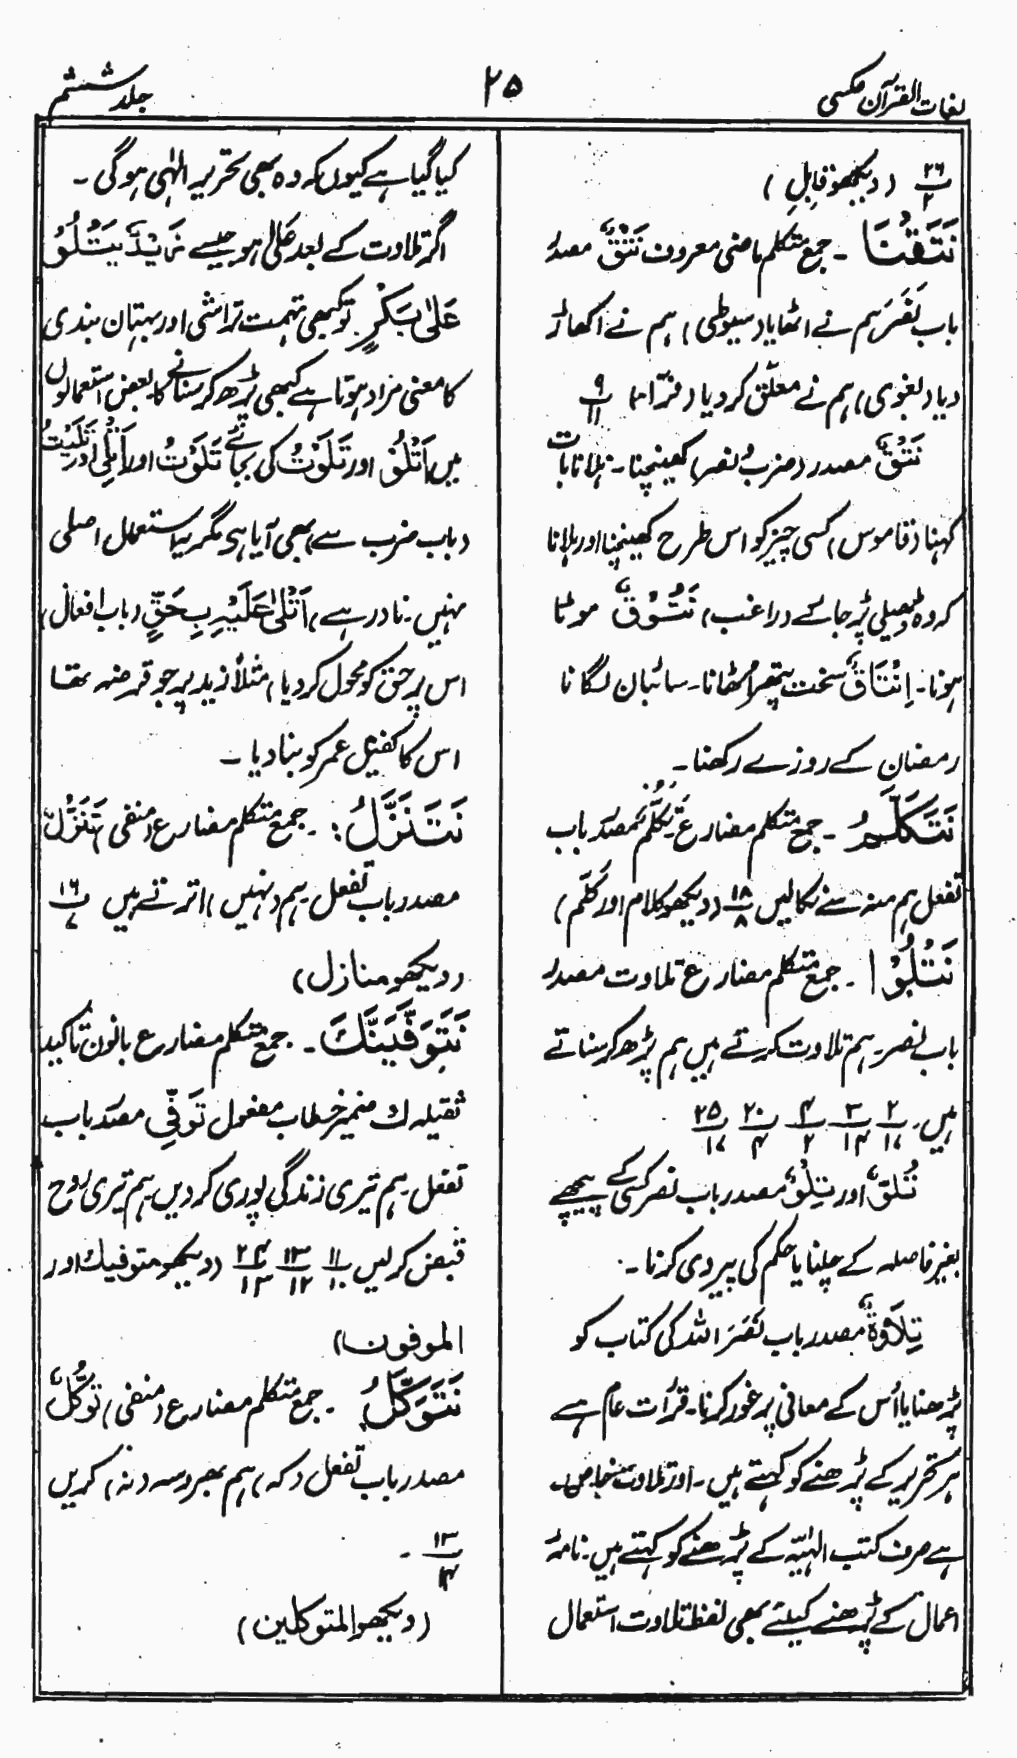 لغات القرآن عکسی
۲۵
جلد ششم
۲۶/۲ (دیکھو قابِلِ)
نَتَقْنَا ۔ جمع متکلم ماضی معروف نَتْقٌ مصدر
باب نَصَرَ ہم نے اٹھایا (سیوطی) ہم نے اکھاڑ
دیا (بغوی) ہم نے معلّق کردیا (فرّاء) ۹/۱۱
نَتْقٌ مصدر (ضرب نصر) کھینچنا ۔ ہلانا بات
کہنا (قاموس) کسی چیز کو اس طرح کھینچنا اور ہلانا
کہ وہ ڈھیلی پڑ جائے (راغب) نَتُوْقٌ موٹا
ہونا ۔ اِنْتَاقٌ سخت پتھر اٹھانا ۔ سائبان لگانا
رمضان کے روزے رکھنا ۔
نَتَكَلَّمُ ۔ جمع متکلم مضارع تَكَلُّمٌ مصدر باب
تفعل ہم منہ سے نکالیں ۱۸/۸ (دیکھو کلام اور كَلَّمَ)
نَتْلُوْا ۔ جمع متکلم مضارع تلاوت مصدر
باب نصر ۔ ہم تلاوت کرتے ہیں ہم پڑھ کر سناتے
ہیں ۔ ۲/۱۷ ۳/۱۴ ۴/۲ ۲۰/۴ ۲۵/۱۷
تُلُوٌّ اور تِلْوٌ مصدر باب نصر کسی کے پیچھے
بغیر فاصلہ کے چلنا یا حکم کی پیروی کرنا ۔
تِلَاوَةٌ مصدر باب نَصَرَ اللہ کی کتاب کو
پڑھنا یا اُس کے معانی پر غور کرنا ۔ قرأت عام ہے
ہر تحریر کے پڑھنے کو کہتے ہیں ۔ اور تلاوت خاص
ہے صرف کتب الٰہیّہ کے پڑھنے کو کہتے ہیں ۔ نامۂ
اعمال کے پڑھنے کیلئے بھی لفظ تلاوت استعمال
کیا گیا ہے کیوں کہ وہ بھی تحریر الٰہی ہوگی ۔
اگر تلاوت کے بعد عَلٰی ہو جیسے زَيْدٌ يَتْلُوْ
عَلٰى بَكْرٍ تو کبھی تہمت تراشی اور بہتان بندی
کا معنی مراد ہوتا ہے کبھی پڑھ کر سنانے کا بعض استعمالوں
میں اَتْلُوْ اور تَلَوْتُ کی بجائے تَلَوْتُ اور اَتْلِىْ اور تَلَيْتُ
(باب ضرب سے) بھی آیا ہی مگر یہ استعمال اصلی
نہیں ۔ نادر ہے) اَتْلٰى عَلَيْهِ بِحَقٍّ (باب افعال)
اس پر حق کو محول کردیا) مثلاً زید پر جو قرضہ تھا
اس کا کفیل عمر کو بنا دیا ۔
نَتَنَزَّلُ : ۔ جمع متکلم مضارع (منفی) تَنَزُّلٌ
مصدر باب تفعل ۔ ہم (نہیں) اترتے ہیں ۱۶/۷
(دیکھو منازل)
نَتَوَفَّيَنَّكَ ۔ جمع متکلم مضارع بانون تاکید
ثقیلہ ك ضمیر خطاب مفعول تَوَفِّى مصدر باب
تفعل ۔ ہم تیری زندگی پوری کردیں ہم تیری روح
قبض کرلیں ۱۱/۱۰ ۱۳/۱۲ ۲۴/۱۳ (دیکھو متوفيك اور
الموفون)
نَتَوَكَّلُ ۔ جمع متکلم مضارع (منفی) تَوَكُّلٌ
مصدر باب تفعل (کہ) ہم بھروسہ (نہ) کریں
۱۳/۱۴ ۔
(دیکھو المتوکلین)